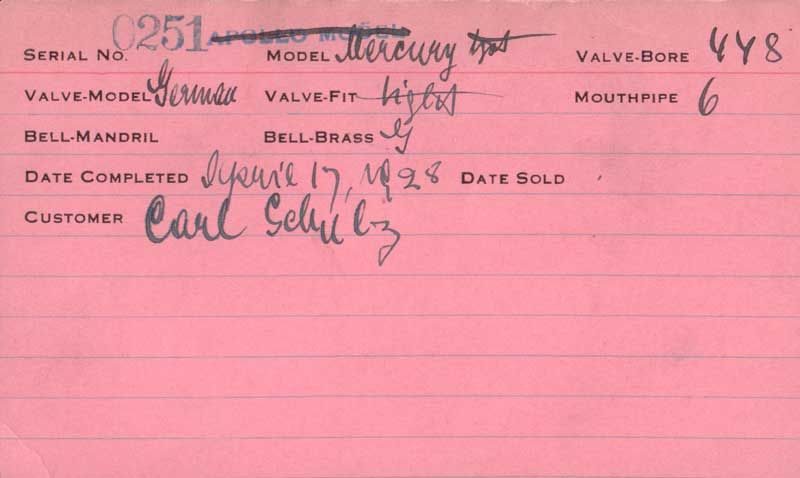 SERIAL NO. 0251 APOLLO MODEL MODEL Mercury VALVE-BORE 448
VALVE-MODEL German VALVE-FIT Light MOUTHPIPE 6
BELL-MANDRIL BELL-BRASS G
DATE COMPLETED April 17, 1928 DATE SOLD
CUSTOMER Carl Schulz